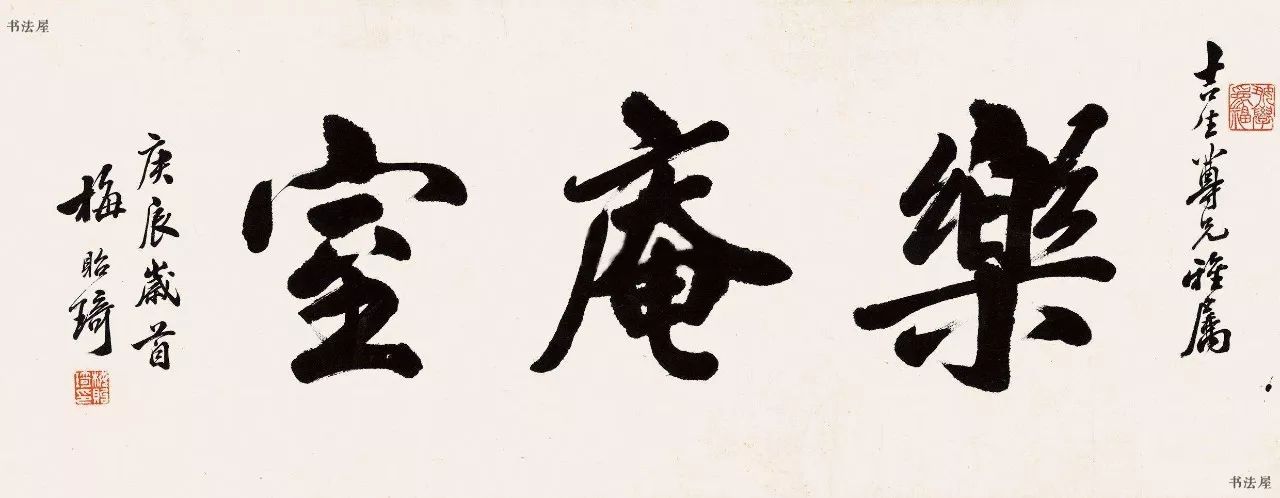 书法屋
吉生尊兄雅屬
樂庵室
庚辰歲首
梅貽琦
书法屋